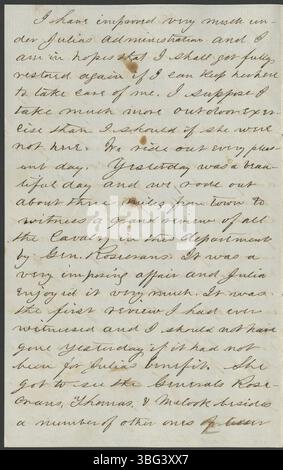 I have improved very much un-
der Julia's administration and I
am in hopes that I shall get fully
restored again if I can keep her here
to take care of me. I suppose I
take much more outdoor exer-
cise than I should if she were
not here. We ride out every pleas-
ant day. Yesterday was a beau-
tiful day and we rode out
about three miles from town to
witness a grand review of all
the Cavalry in this department
by Gen. Rosecrans. It was a
very imposing affair and Julia
enjoyed it very much. It was
the first review I had ever
witnessed and I should not have
gone yesterday if it had not
been for Julia's benefit. She
got to see the Generals Rose-
crans, Thomas, & McCook besides
a number of other ones of
alamy
Image ID: 3BG3XX7
www.alamy.com